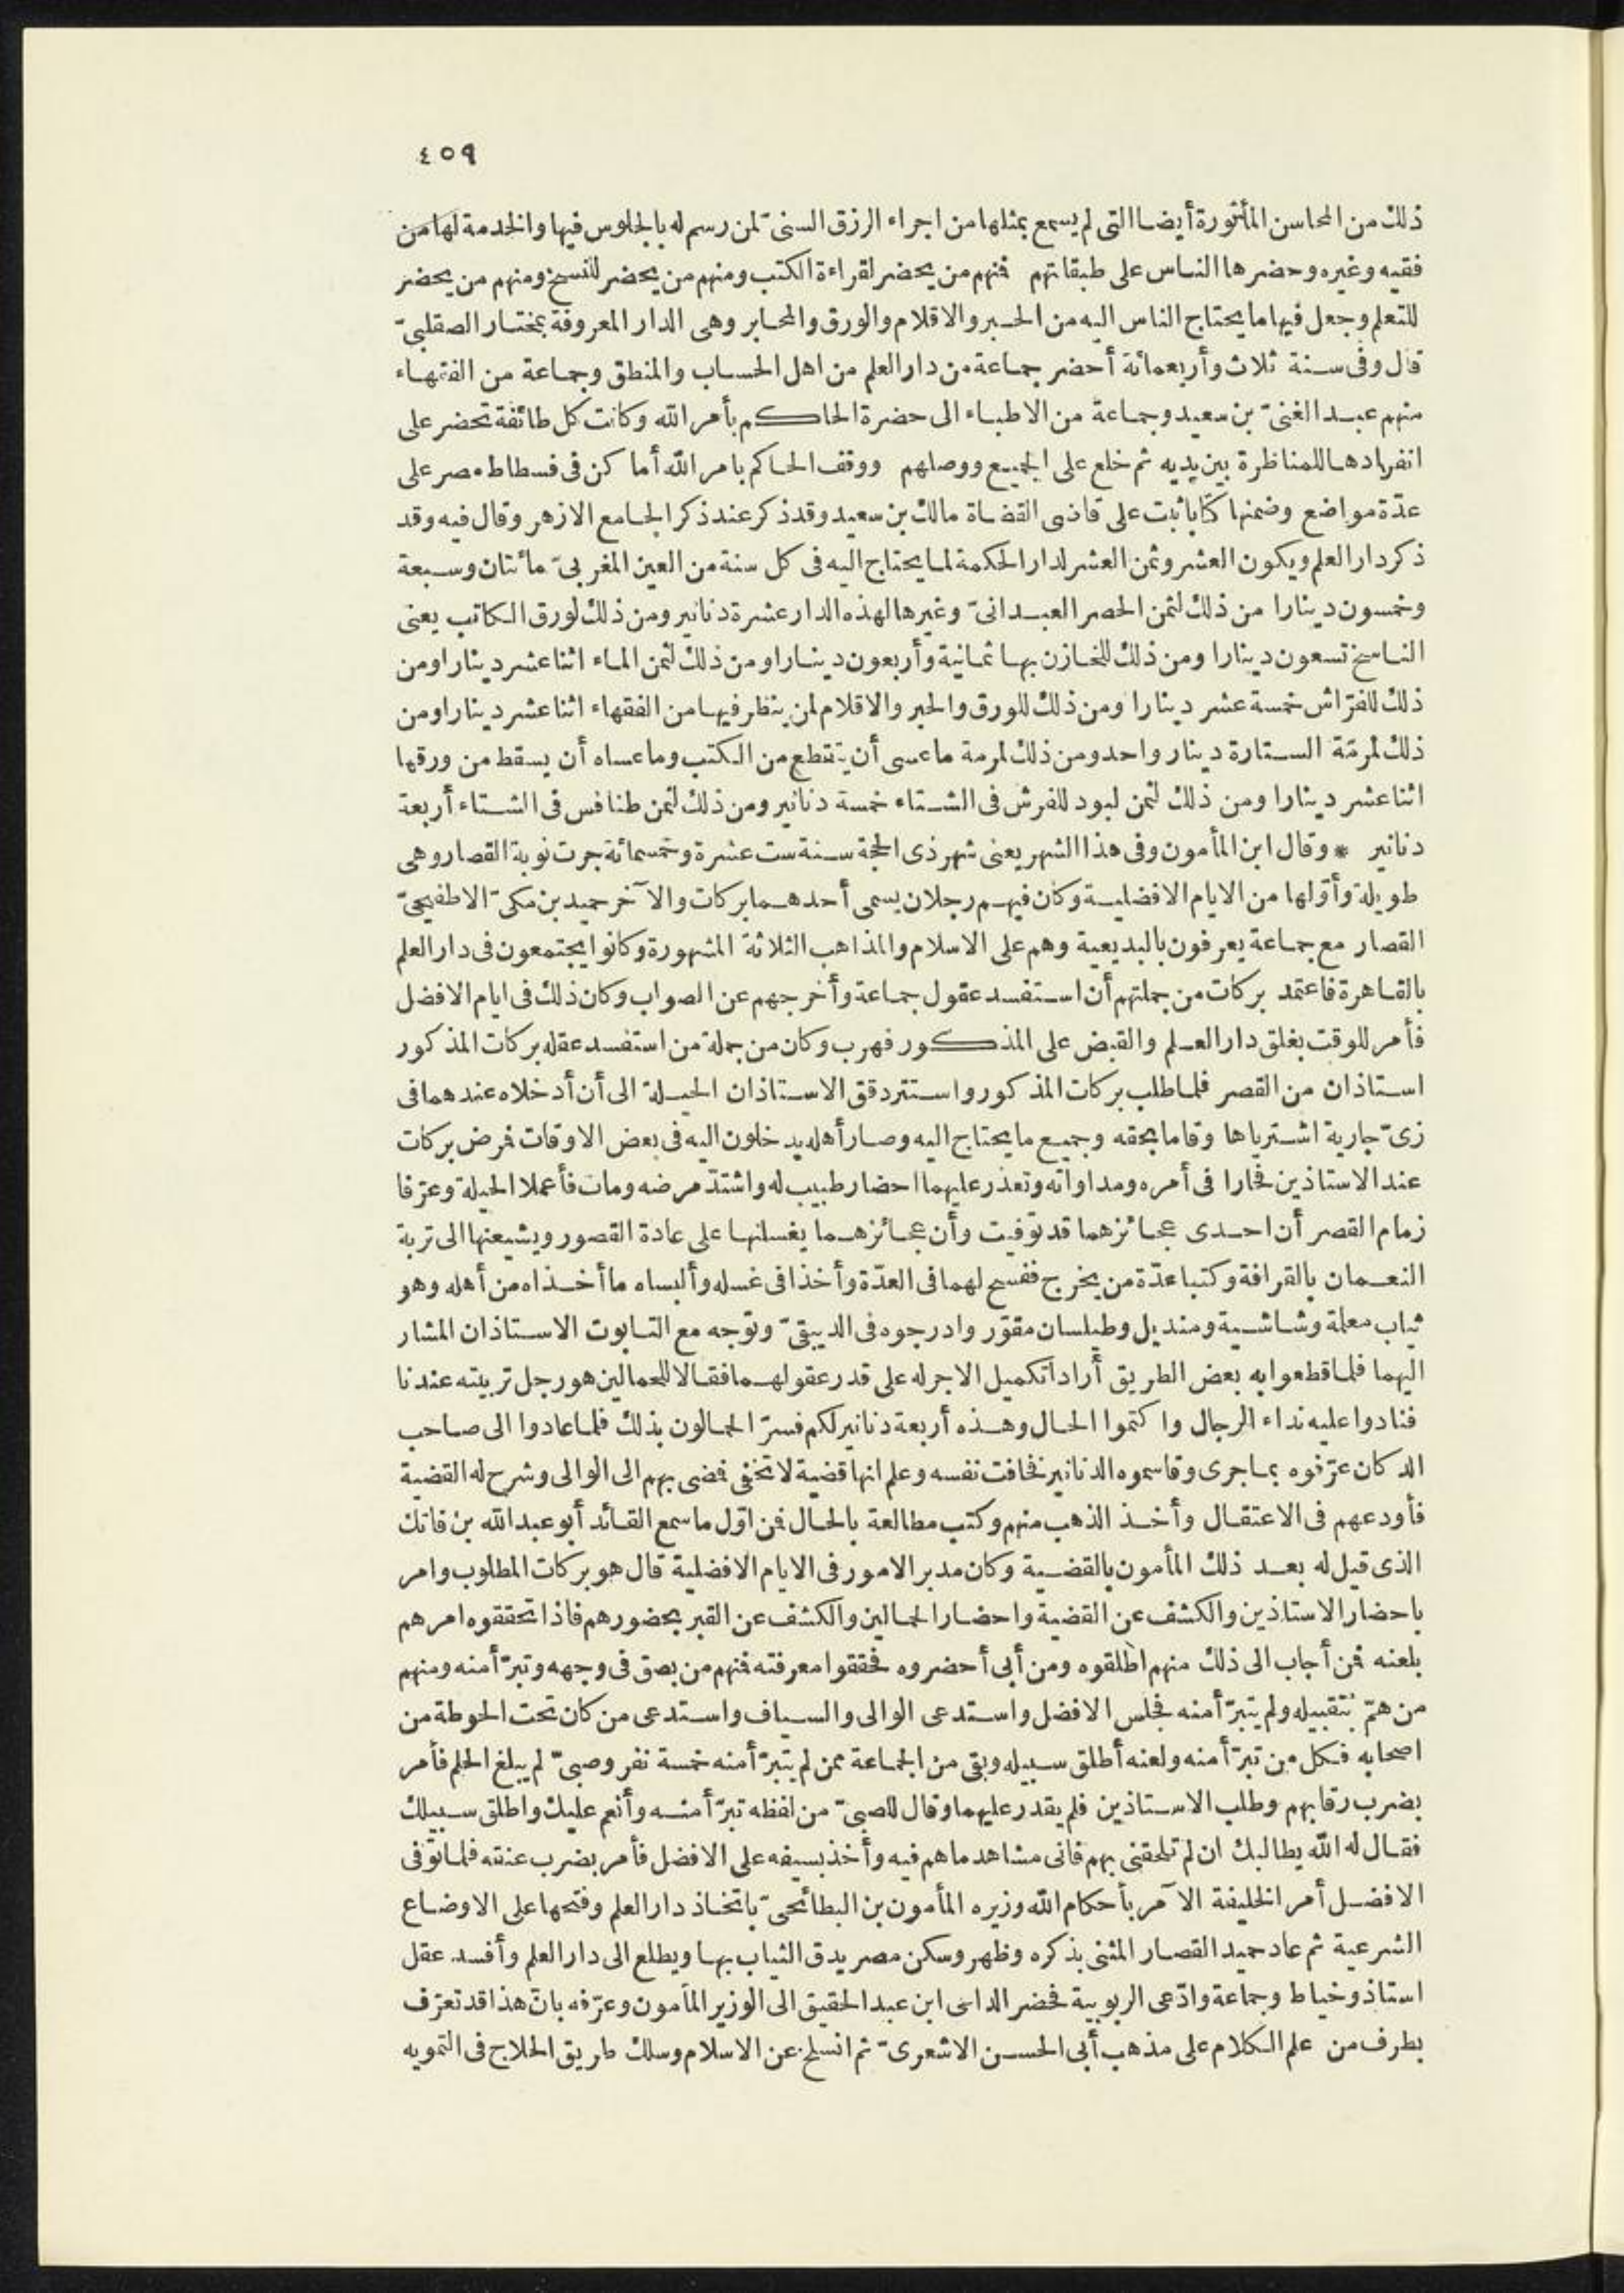 ٤٥٩
ذلك من المحاسن المأثورة أيضا التى لم يسمع بمثلها من اجراء الرزق السنىّ لمن رسم له بالجلوس فيها والخدمة لها من
فقيه وغيره وحضرها الناس على طبقاتهم فنهم من يحضر لقراءة الكتب ومنهم من يحضر للنسخ ومنهم من يحضر
للتعلم وجعل فيها ما يحتاج الناس اليه من الحبر والاقلام والورق والمحابر وهى الدار المعروفة بمختار الصقلبىّ
قال وفى سنة ثلاث وأربعمائة أحضر جماعة من دار العلم من اهل الحساب والمنطق وجماعة من الفقهاء
منهم عبد الغنىّ بن سعيد وجماعة من الاطباء الى حضرة الحاكم بأمر الله وكانت كل طائفة تحضر على
انفرادها للمناظرة بين يديه ثم خلع على الجميع ووصلهم ووقف الحاكم بامر الله أماكن فى فسطاط مصر على
عدّة مواضع وضمنها كتابا ثبت على قاضى القضاة مالك بن سعيد وقد ذكر عند ذكر الجامع الازهر وقال فيه وقد
ذكر دار العلم ويكون العشر وثمن العشر لدار الحكمة لما يحتاج اليه فى كل سنة من العين المغربىّ مائتان وسبعة
وخمسون دينارا من ذلك لثمن الحصر العبدانىّ وغيرها لهذه الدار عشرة دنانير ومن ذلك لورق الكاتب يعنى
الناسخ تسعون دينارا ومن ذلك للخازن بها ثمانية وأربعون دينارا ومن ذلك لثمن الماء اثنا عشر دينارا ومن
ذلك للفرّاش خمسة عشر دينارا ومن ذلك للورق والحبر والاقلام لمن ينظر فيها من الفقهاء اثنا عشر دينارا ومن
ذلك لمرمّة الستارة دينار واحد ومن ذلك لمرمة ما عسى أن يتقطع من الكتب وما عساه أن يسقط من ورقها
اثنا عشر دينارا ومن ذلك لثمن لبود للفرش فى الشتاء خمسة دنانير ومن ذلك لثمن طنافس فى الشتاء أربعة
دنانير * وقال ابن المأمون وفى هذا الشهر يعنى شهر ذى الحجة سنة ست عشرة وخمسمائة جرت نوبة القصار وهى
طويلة وأوّلها من الايام الافضلية وكان فيهم رجلان يسمى أحدهما بركات والآخر حميد بن مكىّ الاطفيحىّ
القصار مع جماعة يعرفون بالبديعية وهم على الاسلام والمذاهب الثلاثة المشهورة وكانوا يجتمعون فى دار العلم
بالقاهرة فاعتمد بركات من جملتهم أن استفسد عقول جماعة وأخرجهم عن الصواب وكان ذلك فى ايام الافضل
فأمر للوقت بغلق دار العلم والقبض على المذكور فهرب وكان من جملة من استفسد عقله بركات المذكور
استاذان من القصر فلما طلب بركات المذكور واستتر دقق الاستاذان الحيلة الى أن أدخلاه عندهما فى
زىّ جارية اشترياها وقاما بحقه وجميع ما يحتاج اليه وصار أهله يدخلون اليه فى بعض الاوقات فمرض بركات
عند الاستاذين فحارا فى أمره ومداواته وتعذر عليهما احضار طبيب له واشتدّ مرضه ومات فأعملا الحيلة وعرّفا
زمام القصر أن احدى عجائزهما قد توفيت وأن عجائزهما يغسلنها على عادة القصور ويشيعنها الى تربة
النعمان بالقرافة وكتبا عدّة من يخرج ففسح لهما فى العدّة وأخذا فى غسله وألبساه ما أخذاه من أهله وهو
ثياب معلمة وشاشية ومنديل وطيلسان مقوّر وادرجوه فى الديبقىّ وتوجه مع التابوت الاستاذان المشار
اليهما فلما قطعوا به بعض الطريق أرادا تكميل الاجر له على قدر عقولهما فقالا للحمالين هو رجل تربيته عندنا
فنادوا عليه نداء الرجال واكتموا الحال وهذه أربعة دنانير لكم فسرّ الحمالون بذلك فلما عادوا الى صاحب
الدكان عرّفوه بما جرى وقاسموه الدنانير فخافت نفسه وعلم انها قضية لا تخفى فمضى بهم الى الوالى وشرح له القضية
فأودعهم فى الاعتقال وأخذ الذهب منهم وكتب مطالعة بالحال فمن اوّل ما سمع القائد أبو عبد الله بن فاتك
الذى قيل له بعد ذلك المأمون بالقضية وكان مدبر الامور فى الايام الافضلية قال هو بركات المطلوب وامر
باحضار الاستاذين والكشف عن القضية واحضار الحمالين والكشف عن القبر بحضورهم فاذا تحققوه امرهم
بلعنه فمن أجاب الى ذلك منهم اطلقوه ومن أبى أحضروه فحققوا معرفته فنهم من بصق فى وجهه وتبرّأ منه ومنهم
من همّ بتقبيله ولم يتبرّأ منه فجلس الافضل واستدعى الوالى والسياف واستدعى من كان تحت الحوطة من
اصحابه فكل من تبرّأ منه ولعنه أطلق سبيله وبقى من الجماعة ممن لم يتبرّأ منه خمسة نفر وصبىّ لم يبلغ الحلم فأمر
بضرب رقابهم وطلب الاستاذين فلم يقدر عليهما وقال للصبىّ من لفظه تبرّأ منه وأنعم عليك واطلق سبيلك
فقال له الله يطالبك ان لم تلحقنى بهم فانى مشاهد ما هم فيه وأخذ بسيفه على الافضل فأمر بضرب عنقه فلما توفى
الافضل أمر الخليفة الآمر بأحكام الله وزيره المأمون بن البطائحىّ باتخاذ دار العلم وفتحها على الاوضاع
الشرعية ثم عاد حميد القصار المثنى بذكره وظهر وسكن مصر يدق الثياب بها ويطلع الى دار العلم وأفسد عقل
استاذ وخياط وجماعة وادّعى الربوبية فحضر الداعى ابن عبد الحقيق الى الوزير المأمون وعرّفه بانّ هذا قد تعرّف
بطرف من علم الكلام على مذهب أبى الحسن الاشعرىّ ثم انسلخ عن الاسلام وسلك طريق الحلاج فى التمويه